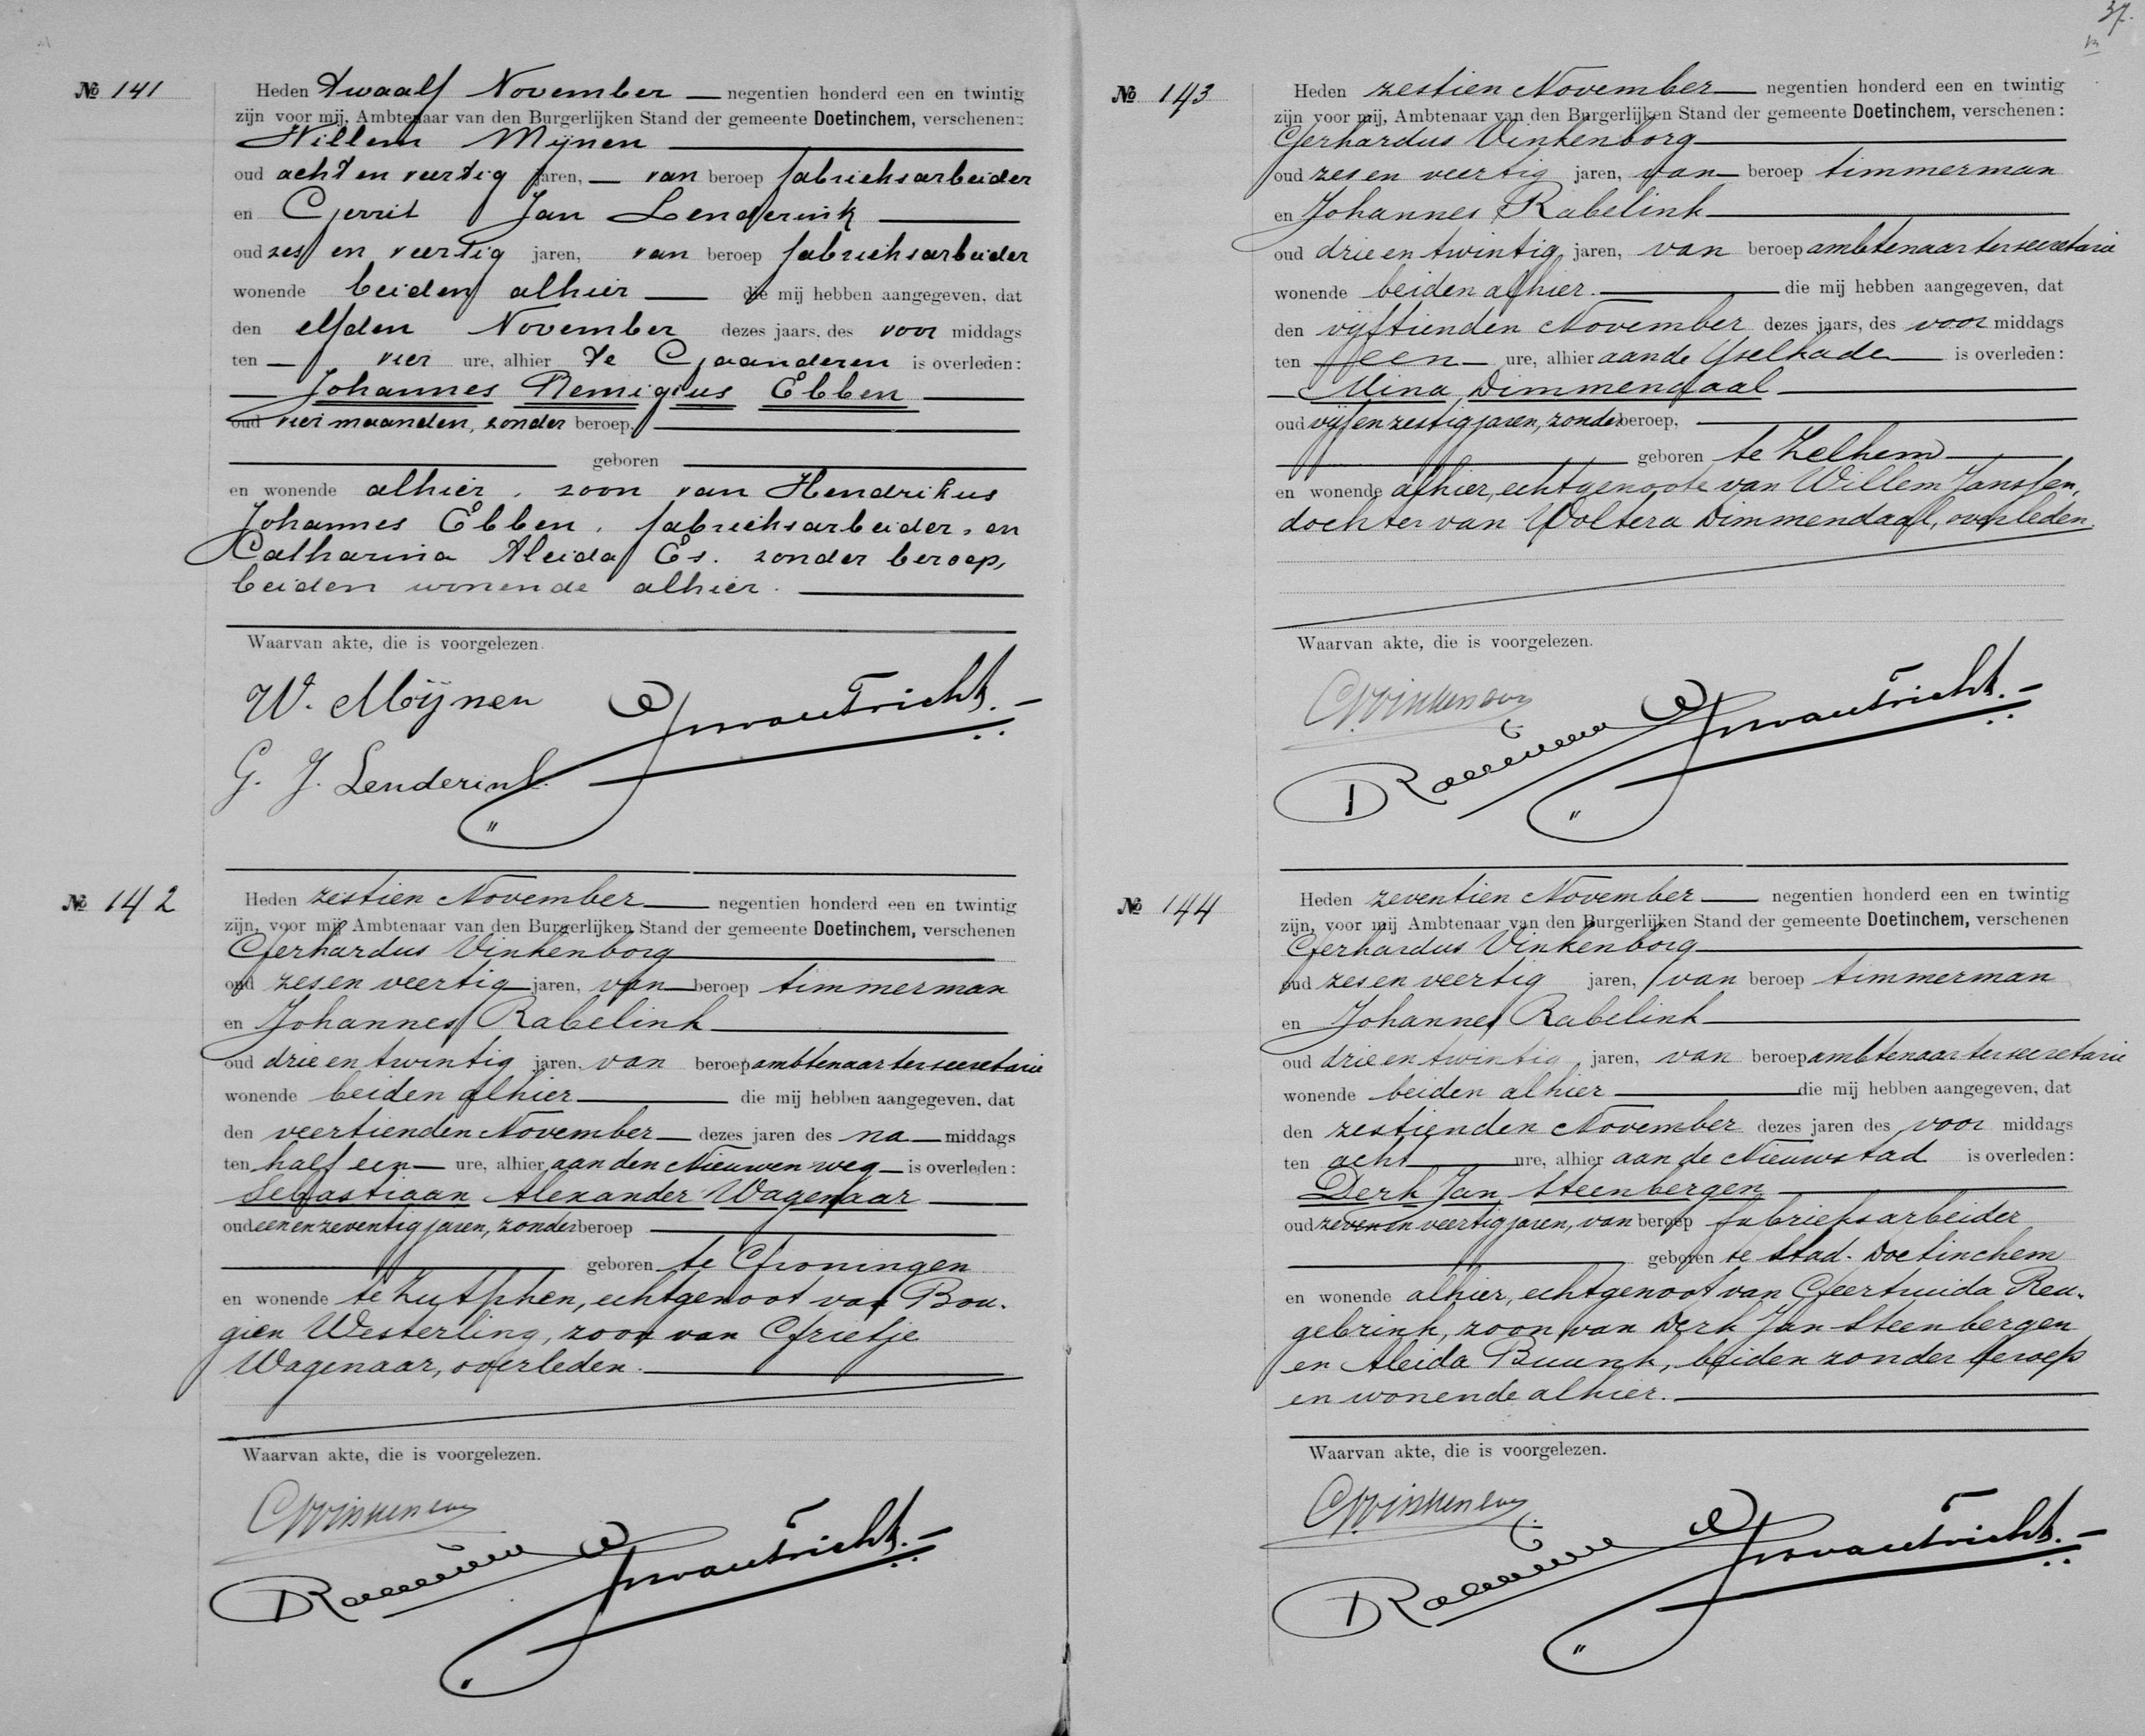 37.
№ 141
Heden Twaalf November — negentien honderd een en twintig
zijn voor mij, Ambtenaar van den Burgerlijken Stand der gemeente Doetinchem, verschenen:
Willem Mijnen
oud acht en veertig jaren, — van beroep fabrieksarbeider
en Gerrit Jan Lenderink
oud zes en veertig jaren, van beroep fabrieksarbeider
wonende beiden alhier — die mij hebben aangegeven, dat
den elfden November dezes jaars, des voor middags
ten — vier ure, alhier te Gaanderen is overleden:
— Johannes Remigius Ebben —
oud vier maanden, zonder beroep,
geboren
en wonende alhier, zoon van Hendrikus
Johannes Ebben, fabrieksarbeider, en
Catharina Aleida Es. zonder beroep,
beiden wonende alhier.
Waarvan akte, die is voorgelezen.
W. Mijnen
G. J. Lenderink
№ 142
Heden zestien November — negentien honderd een en twintig
zijn, voor mij Ambtenaar van den Burgerlijken Stand der gemeente Doetinchem, verschenen
Gerhardus Vinkenborg
oud zes en veertig jaren, van beroep timmerman
en Johannes Rabelink
oud drie en twintig jaren, van beroep ambtenaar ter secretarie
wonende beiden alhier — die mij hebben aangegeven, dat
den veertienden November — dezes jaren des na — middags
ten half een — ure, alhier aan den Nieuwen weg — is overleden:
Sebastiaan Alexander Wagenaar
oud een en zeventig jaren, zonder beroep
geboren te Groningen
en wonende te Zutphen, echtgenoot van Bou-
gien Westerling, zoon van Grietje
Wagenaar, overleden.
Waarvan akte, die is voorgelezen.
№ 143
Heden zestien November — negentien honderd een en twintig
zijn voor mij, Ambtenaar van den Burgerlijken Stand der gemeente Doetinchem, verschenen:
Gerhardus Vinkenborg
oud zes en veertig jaren, van — beroep timmerman
en Johannes Rabelink
oud drie en twintig jaren, van beroep ambtenaar ter secretarie
wonende beiden alhier. — die mij hebben aangegeven, dat
den vijftienden November dezes jaars, des voor middags
ten — een — ure, alhier aan de Yselkade — is overleden:
— Mina Dimmendaal —
oud vijf en zestig jaren, zonder beroep,
geboren te Zelhem
en wonende alhier, echtgenoote van Willem Janssen,
dochter van Woltera Dimmendaal, overleden.
Waarvan akte, die is voorgelezen.
№ 144
Heden zeventien November — negentien honderd een en twintig
zijn, voor mij Ambtenaar van den Burgerlijken Stand der gemeente Doetinchem, verschenen
Gerhardus Vinkenborg
oud zes en veertig jaren, van beroep timmerman
en Johannes Rabelink
oud drie en twintig jaren, van beroep ambtenaar ter secretarie
wonende beiden alhier — die mij hebben aangegeven, dat
den zestienden November dezes jaren des voor middags
ten acht — ure, alhier aan de Nieuwstad is overleden:
Derk Jan Steenbergen
oud zeven en veertig jaren, van beroep fabrieksarbeider
geboren te Stad-Doetinchem
en wonende alhier, echtgenoot van Geertruida Reu-
gebrink, zoon van Derk Jan Steenbergen
en Aleida Buunk, beiden zonder beroep
en wonende alhier.
Waarvan akte, die is voorgelezen.